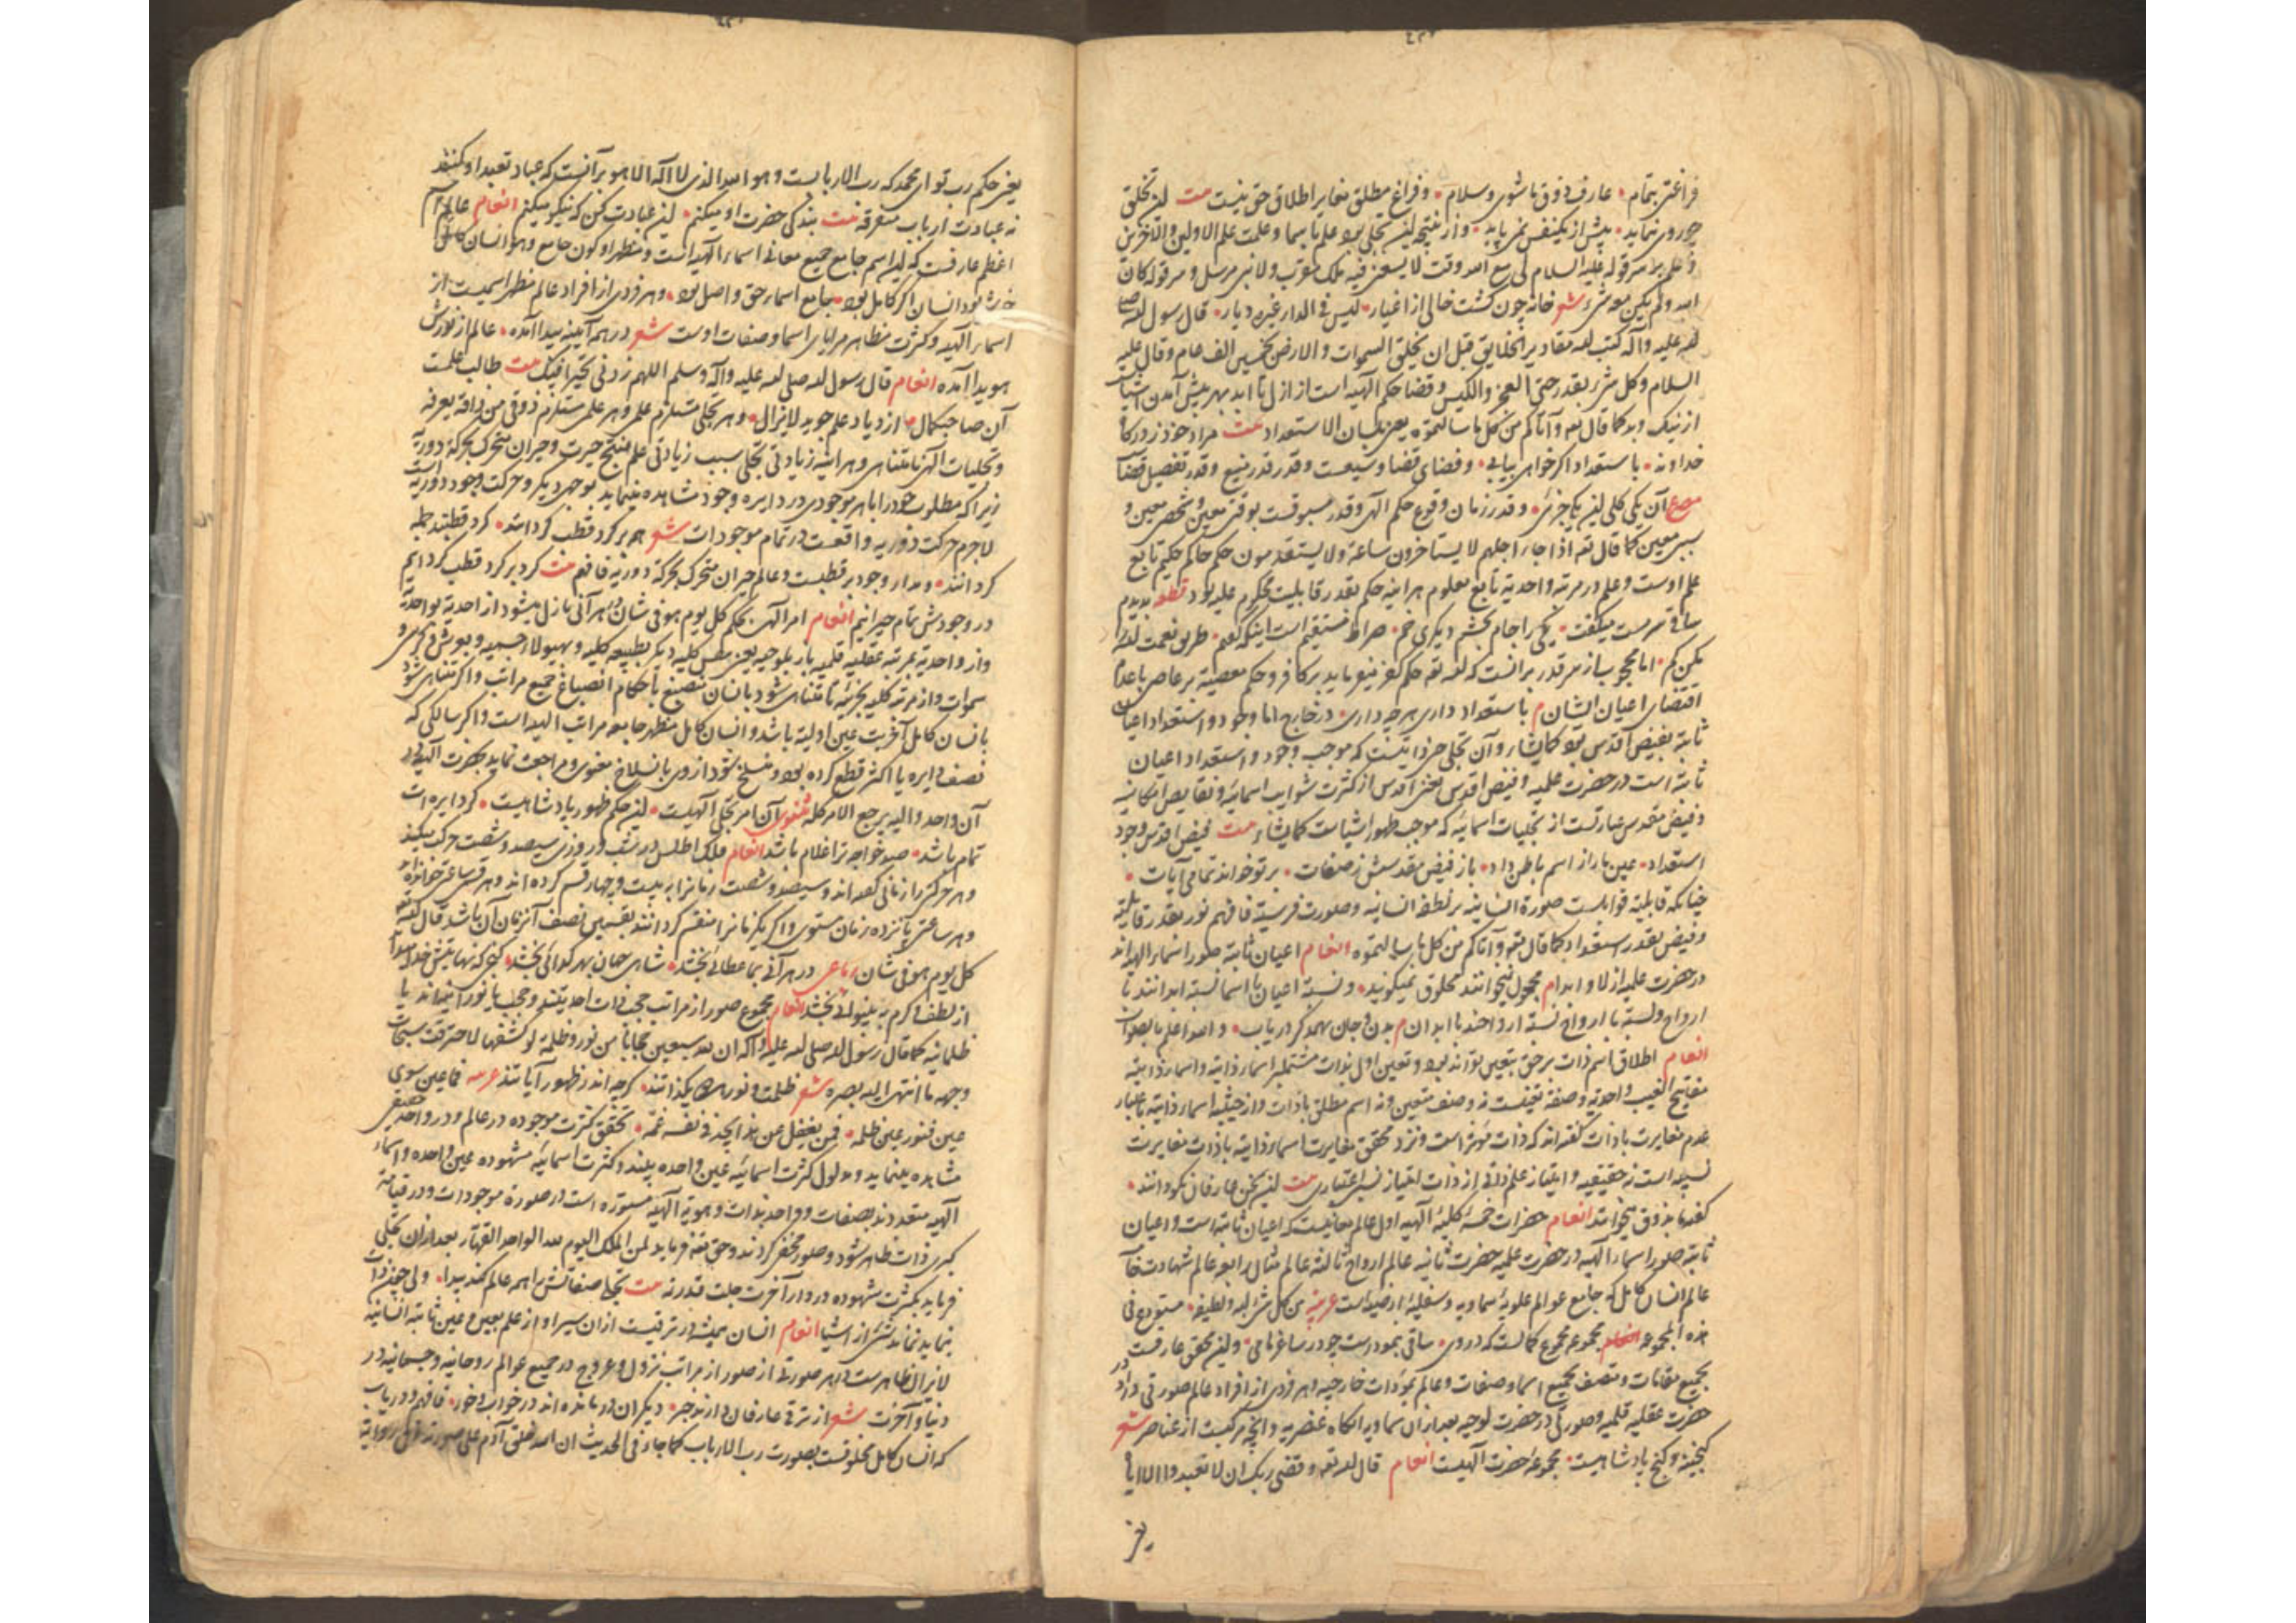 فراغتی بتمام عارف ذوق باشوی و سلام و فراغ مطلق مغایر اطلاق حق نیست بیت این تخلق
چو روی نماید پیش از یکنفس نمی پاید و از نتیجه این تجلی بود علم باسما و علمت علم الاولین والآخرین
قوله علیه السلام لی مع الله وقت لا یسعنی فیه ملک مقرب ولا نبی مرسل و سر قوله کان
الله ولم یکن معه شیء شعر خانه چون گشت خالی از اغیار لیس فی الدار غیره دیار قال رسول الله صلی
الله علیه وآله کتب الله مقادیر الخلایق قبل ان یخلق السموات والارض بخمسین الف عام وقال علیه
السلام وکل شیء بقدر حتی العجز والکیس و قضا حکم الهیه است از ازل تا ابد بهر پیش آمدن اشیا
از نیک و بد کما قال تعه وآتاکم من کل ما سالتموه یعنی بلسان الاستعداد بیت مراد خود ز درگاه
خداوند باستعداد اگر خواهی بیابی و فضای قضا وسیعست و قدر قدر منیع و قدر تفصیل قضا
مصرع آن یکی کلی این یکی جزئی و قدر زمان وقوع حکم الهی و قدر مسبوقست بوقتی معین و شخصی معین و
سببی معین کما قال تعه اذا جاء اجلهم لا یستاخرون ساعة ولا یستقدمون حکم حاکم حکیم تابع
علم اوست و علم در مرتبه واحدیه تابع معلوم هر اینه حکم بقدر قابلیت محکوم علیه بود قطعه بدیدم
ساقی سرمست میگفت یکی را جام بخشم دیگری خم صراط مستقیم است اینکه گفتم طریق نعمت الله
اما محجوب از سر قدر برانست که الله تعه حکم کفر میفرماید بر کافر و حکم معصیه بر عاصی باعدم
اقتضای اعیان ایشان م باستعداد داری هر چه داری در خارج اما وجود و استعداد اعیان
ثابته بفیض اقدس بود کمایشاء و آن تجلی حبی ذاتیست که موجب وجود و استعداد اعیان
ثابته است در حضرت علمیه و فیض اقدس یعنی اقدس از کثرت شوایب اسمائیه و نقایص امکانیه
و فیض مقدس عبارتست از تجلیات اسمائیه که موجب ظهور اشیاست کمایشاء بیت فیض اقدس وجود
استعداد عین ما را از اسم باطن داد باز فیض مقدسش ز صفات بر تو خواند تمامی آیات
چنانکه قابلیة قوابلست صورة انسانیه بر نطفه انسانیه و صورت فرسیه فافهم نور بقدر قابلیة
و فیض بقدر استعداد کما قال تعه وآتاکم من کل ما سالتموه انعام اعیان ثابته صور اسماء الهیه اند
در حضرت علمیه ازلا و ابدا م مجعول نیخوانند مخلوق نمیگویند و نسبة اعیان با اسما نسبة ابدانند با
ارواح و نسبة با ارواح نسبة ارواحند با ابدان م بدن و جان همدگر دریاب والله اعلم بالصواب
انعام اطلاق اسم ذات بر حق بتعین تواند بود و تعین اول بذات مشتملبر اسماء ذاتیه و اسماء ذاتیه
مفاتیح الغیب و احدیه و صفة تعینست نه وصف متعین و نه اسم مطلق با ذات و از حیثیه اسماء ذاتیه باعتبار
عدم مغایرت با ذات گفته اند که ذات مؤثر است و نزد محقق مغایرت اسماء ذاتیه با ذات مغایرت
نسبیه است نه حقیقیه و امتیاز علم ذاتی از ذات امتیاز نسبی اعتباری بیت این سخن عارفان نکو دانند
گفته ما بذوق میخوانند انعام حضرات خمسه کلیه الهیه اول عالم معانیست که اعیان ثابته است و اعیان
ثابته صور اسماء الهیه در حضرت علمیه حضرت ثانیه عالم ارواح ثالثه عالم مثال رابعه عالم شهادت خامسه
عالم انسان کامل که جامع عوالم علویه سماویه و سفلیه ارضیه است عربیه من کل شیء لبه و لطیفه مستودع فی
هذه المجموعه انعام مجموعه مجموع کمالست که در وی ساقی بنمودست چو در ساغر ما می و این محقق عارفست
بجمیع مقامات و متصف بجمیع اسما و صفات و عالم بموجودات خارجیه و هر فردی از افراد عالم صورتی دارد در
حضرت عقلیه قلمیه و صورتی در حضرت لوحیه بعد از آن سماویه آنگاه عنصریه و آنچه مرکبست از عناصر شعر
گنجینه و گنج پادشاهیست مجموعه حضرت الهیست انعام قال الله تعه و قضی ربک ان لا تعبدوا الا ایاه
یعنی
یعنی حکم رب تو ای محمد که رب الاربابست و هو الله الذی لا اله الا هو بر آنست که عباد تعبد او کنند
نه عبادت ارباب متفرقه بیت بندگی حضرت او میکنم این عبادت کن که نیکو میکنم انعام عالم باسم
اعظم عارفست که این اسم جامع جمیع معانی اسماء الهیه است و مظهر او کون جامع و هو انسان کامل
بود انسان اگر کامل بود جامع اسماء حق واصل بود و هر فردی از افراد عالم مظهر اسمیست از
اسماء الهیه و کثرت مظاهر مرایای اسما و صفات اوست شعر در همه آینه پیدا آمده عالم از نورش
هویدا آمده انعام قال رسول الله صلی الله علیه وآله وسلم اللهم زدنی تحیرا فیک بیت طالب علمست
آن صاحبکمال از دیاد علم جوید لایزال و هر تجلی مستلزم علمی و هر علمی مستلزم ذوقی من ذاقه یعرفه
و تجلیات الهی نامتناهی و هر اینه زیادتی تجلی سبب زیادتی علم منتج حیرت و حیران متحرک بحرکة دوریه
زیرا که مطلوب خود را با هر موجودی در دایره وجود مشاهده مینماید بوجهی دیگر و حرکت وجود دوریه است
لاجرم حرکت دوریه واقعست در تمام موجودات شعر همه بر گرد قطب گردانند گرد قطبند جمله
گردانند و مدار وجود بر قطبست و عالم حیران متحرک بحرکة دوریه فافهم بیت گرد بر گرد قطب گردانیم
در وجودش تمام حیرانیم انعام امر الهی بحکم کل یوم هو فی شان در هر آنی نازل میشود از احدیة بواحدیة
و از واحدیة بمرتبه عقلیه قلمیه باز بلوحیه یعنی نفس کلیه دیگر بطبیعه کلیه و هیولا و جسمیه و بعرش و کرسی و
سموات و از مرتبه کلیه بجزئیه تا متناهی شود بانسان منصبغ باحکام انصباغ جمیع مراتب و اگر متناهی شود
بانسان کامل آخریت عین اولیة باشد و انسان کامل مظهر جامعه مراتب الهیه است و اگر سالکی که
نصف دایره یا اکثر قطع کرده بود و منسلخ شود از وی بانسلاخ معنوی و مراجعت نماید بحضرت الهیه در
آن واحد و الیه یرجع الامر کله مثنوی آن امر تجلی الهیست این حکم ظهور پادشاهیست گر دایره ات
تمام باشد صید خواجه ترا غلام باشد انعام فلک اطلس در شب و روزی سیصد و شصت حرکت میکند
و هر حرکتی را زمانی گفته اند و سیصد و شصت زمانرا به بیست و چهار قسم کرده اند و هر قسم ساعتی خوانده
و هر ساعتی پانزده زمان مستوی و اگر یکزمانرا منقسم گردانند بقسمین نصف آنزمان آن باشد قال الله تعه
کل یوم هو فی شان رباعی در هر آنی بما عطائی بخشد شاهی جهان بهر گدائی بخشد گنجی که نهایتش خدا میداند
از لطف و کرم به بینوائی بخشد انعام مجموع صور از مراتب حجب ذات احدیتند و حجب یا نورانیه اند یا
ظلمانیه کما قال رسول الله صلی الله علیه وآله ان لله سبعین حجابا من نور و ظلمة لو کشفها لاحترقت سبحات
وجهه ما انتهی الیه بصره شعر ظلمت و نور را بگذارند گرچه اندر ظهور آیاتند عربیه فما عین سوی
عین فنور عین ظلمه فمن یغفل عن هذا یجد فی نفسه غمه تحقق کثرت موجوده در عالم و در واحد حقیقی
مشاهده مینماید و مدلول کثرت اسمائیه عین واحده بیند و کثرت اسمائیه مشهوده عین واحده و اسماء
الهیه متعددند بصفات و واحد بذات و هویة الهیه مستوره است در صورة موجودات و در قیامة
کبری ذات ظاهر شود و صور مخفی گردند و حق تعه فرماید لمن الملک الیوم لله الواحد القهار بعد از آن تجلی
فرماید بکثرت شهوده در دار آخرت جلت قدرته بیت تجلی صفاتش را همه عالم کند پیدا ولی چون ذات
بنماید نماند شیء از اشیا انعام انسان همیشه در ترقیست از آن سیر او از علم بعین و عین ثابته انسانیه
لایزال ظاهرست در هر صورتی از صور از مراتب نزول و عروج در جمیع عوالم روحانیه و جسمانیه در
دنیا و آخرت شعر از ترقی عارفان دارند خبر دیگران درمانده اند در خواب و خور فافهم و دریاب
که انسان کامل مخلوقست بصورت رب الارباب کما جاء فی الحدیث ان الله خلق آدم علی صورته و فی روایة